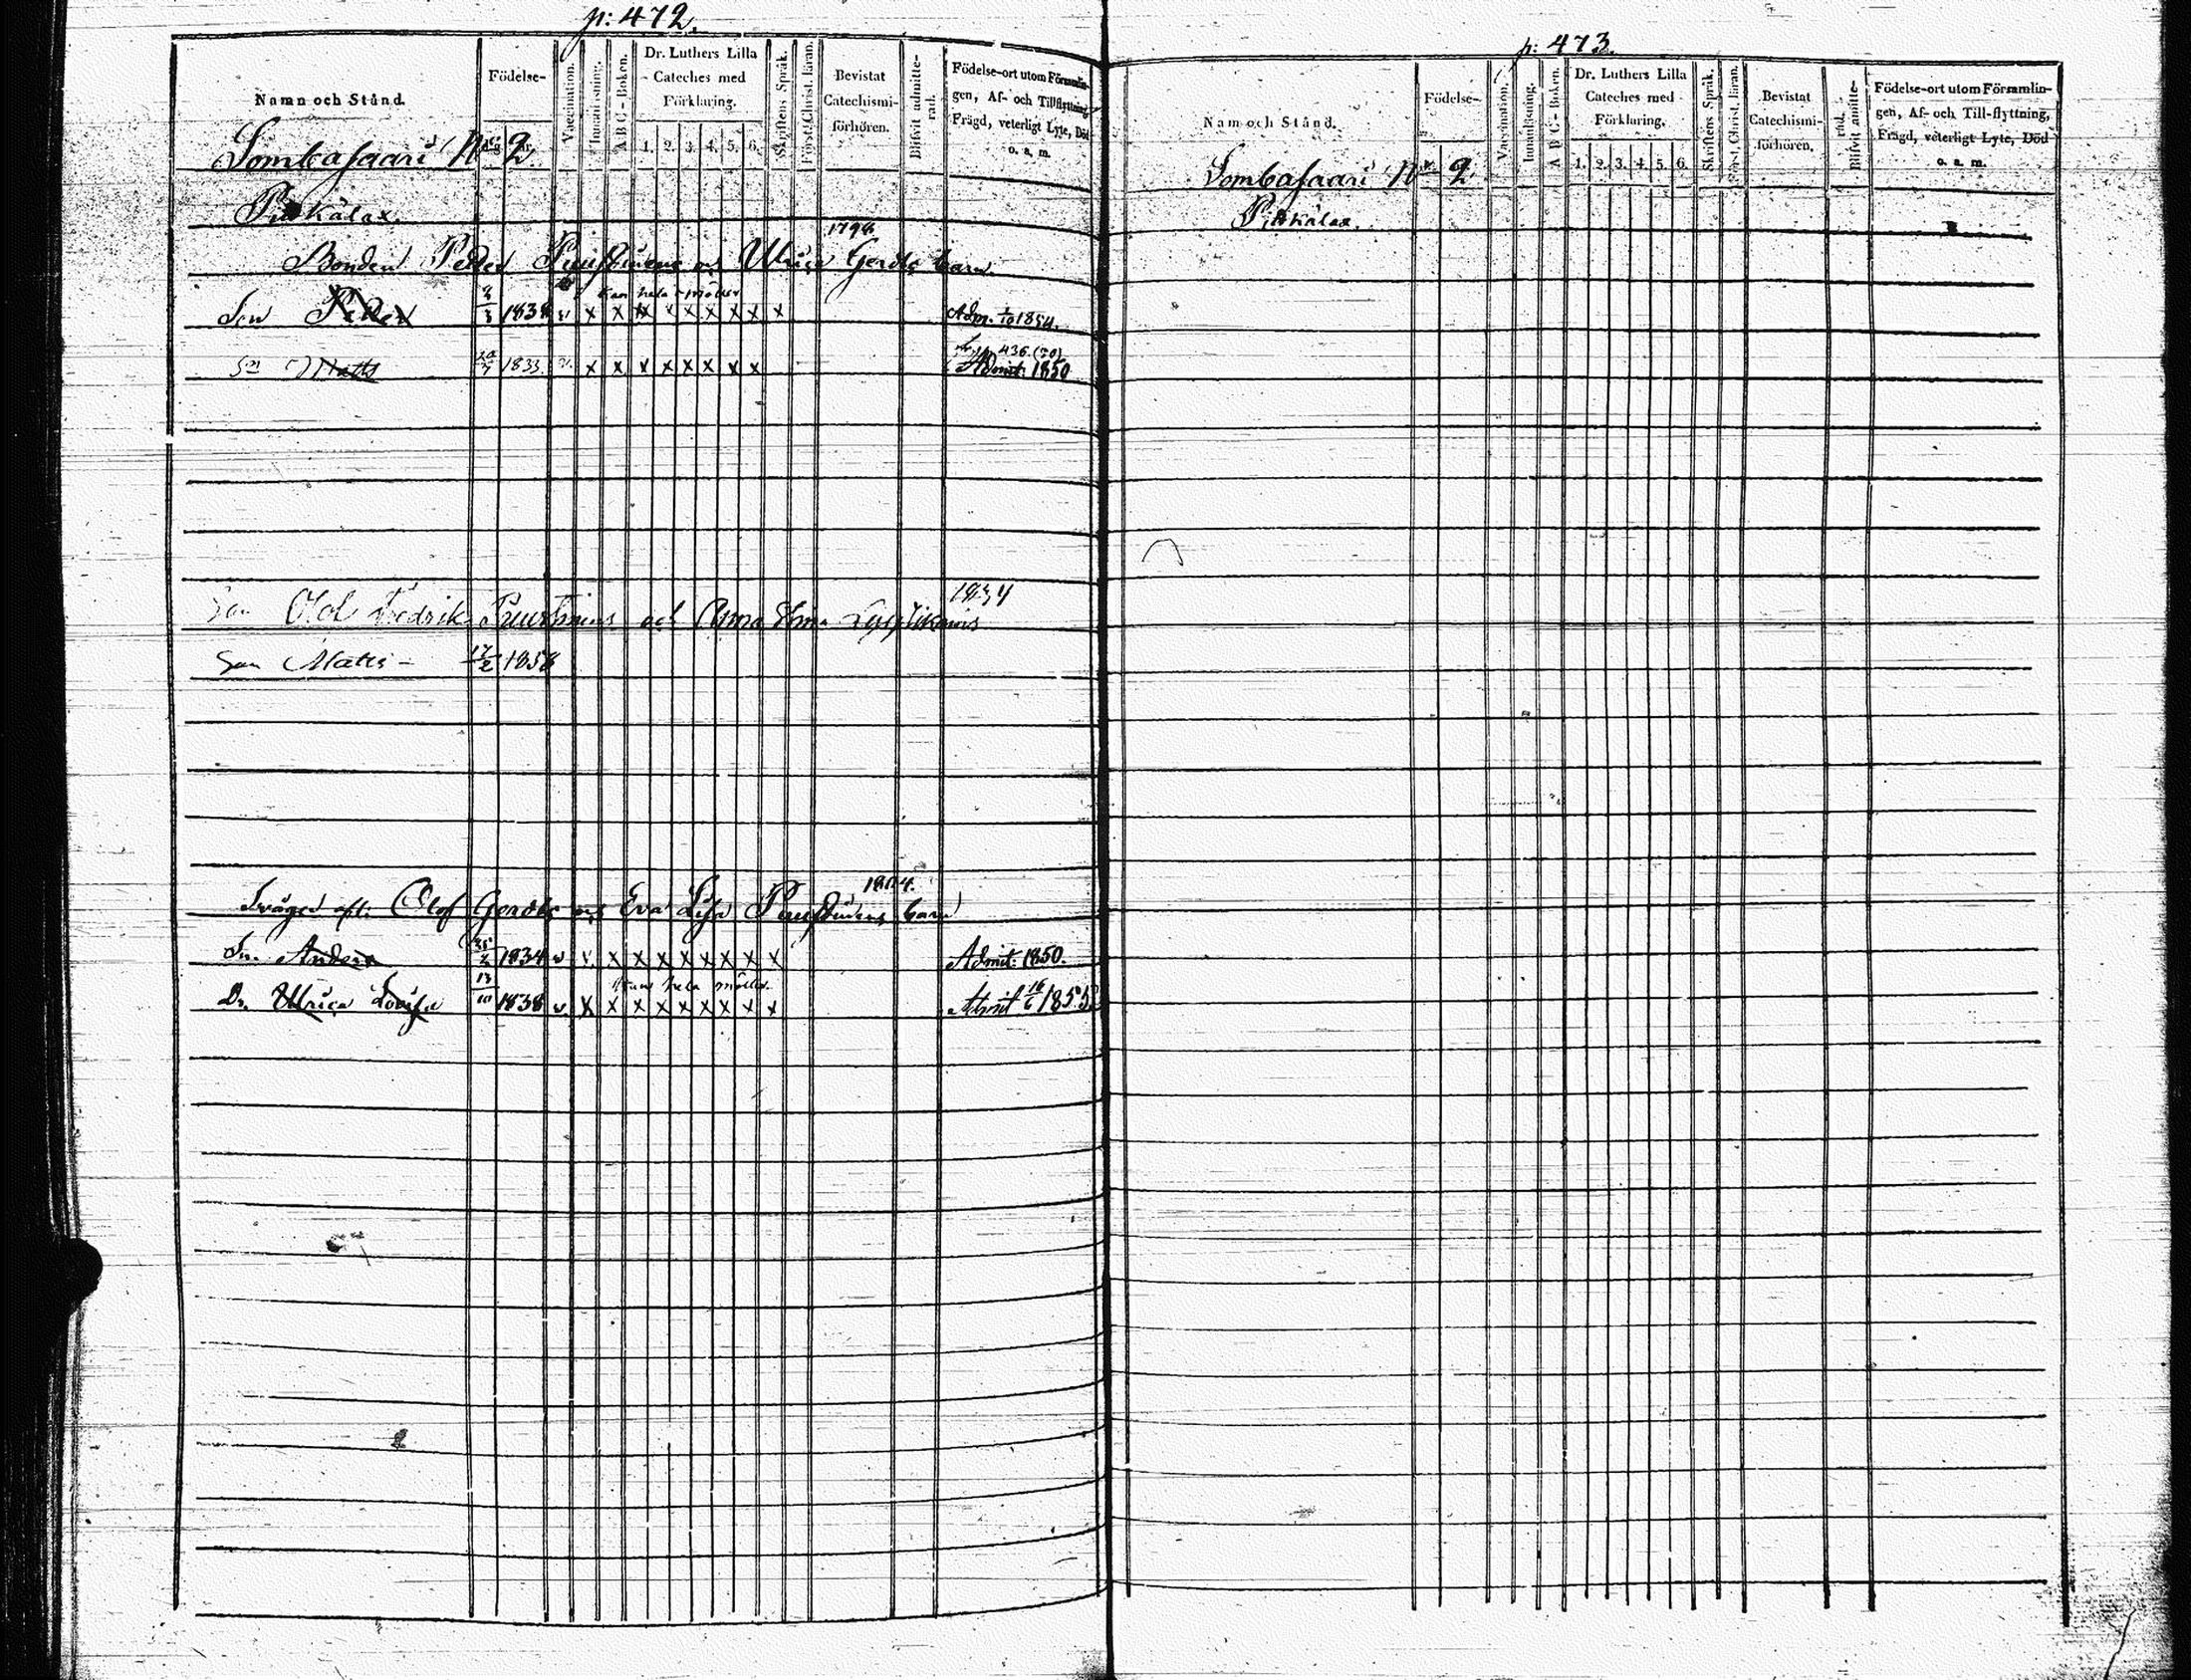 p: 472.
Namn och Stånd.
Födelse-
Vaccination.
Innanläsning.
A B C - Boken.
Dr. Luthers Lilla
Cateches med
Förklaring.
1. 2. 3. 4. 5. 6.
Skriftens Språk.
Först. Christ. läran.
Bevistat
Catechismi-
förhören.
Blifvit admitte-
rad.
Födelse-ort utom Församlin-
gen, Af- och Tillflyttning,
Frägd, veterligt Lyte, Död
o. a. m.
Sombasaari No 2.
Pitkälax.
1798
Bonden Petter Puustinens och Ulrica Gerdts barn
Kan hela
Son Petter 1838 v x x x x x x x x x Adm. 1854.
p. 436
Sn Matts 1833 v x x x x x x x x Admit. 1850
1834
Son Olof Fredrik Puustinens och Anna Stina
Son Matts - 17/2 1858
1804.
Olof Gerdts och Eva Lisa Puustinens barn
Sn. Anders 25/2 1834 v x x x x x x x x x Admit. 1850.
kan hela
Dr. Ulrica Lovisa 13/10 1838 v x x x x x x x x x Admit 16/6 1855
p: 473.
Namn och Stånd.
Födelse-
Vaccination.
Innanläsning.
A B C - Boken.
Dr. Luthers Lilla
Cateches med
Förklaring.
1. 2. 3. 4. 5. 6.
Skriftens Språk.
Först. Christ. läran.
Bevistat
Catechismi-
förhören.
Blifvit admitte-
rad.
Födelse-ort utom Församlin-
gen, Af- och Till-flyttning,
Frägd, veterligt Lyte, Död
o. a. m.
Sombasaari No 2.
Pitkälax.